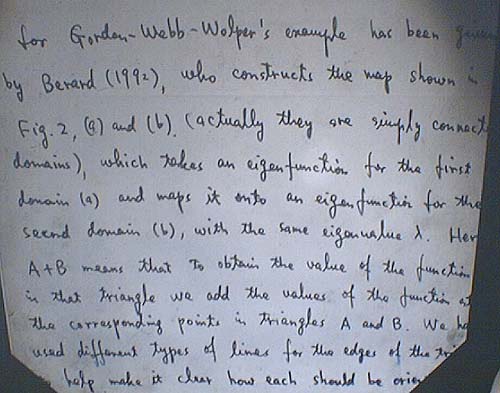 for Gordon-Webb-Wolper's example has been
by Berard (1992), who constructs the map shown in
Fig. 2, (a) and (b). (actually they are simply connect
domains), which takes an eigenfunction for the first
domain (a) and maps it onto an eigenfunction for the
second domain (b), with the same eigenvalue λ. Her
A+B means that to obtain the value of the function
in that triangle we add the values of the function at
the corresponding points in triangles A and B. We ha
used different types of lines for the edges of the tri
help make it clear how each should be orien